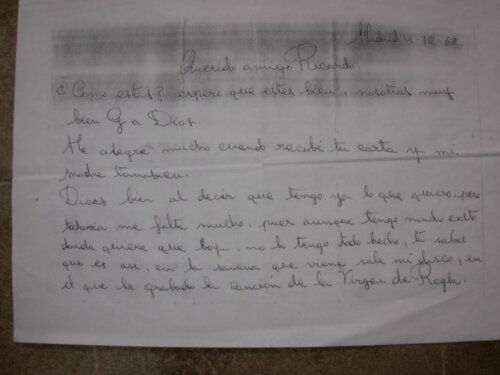 Madrid 4-12-62.
Querido amigo Ricardo:
¿ Como estas? espero que estes bien, nosotras muy
bien G a Dios.
Me alegre mucho cuando recibi tu carta y mi
madre tambien.
Dices bien al decir que tengo ya lo que quiero, pero
todavia me falta mucho, pues aunque tengo mucho exito
donde quiera que voy, no lo tengo todo hecho, tu sabes
que es asi, en la semana que viene sale mi disco, en
el que he grabado la cancion de la Virgen de Regla.